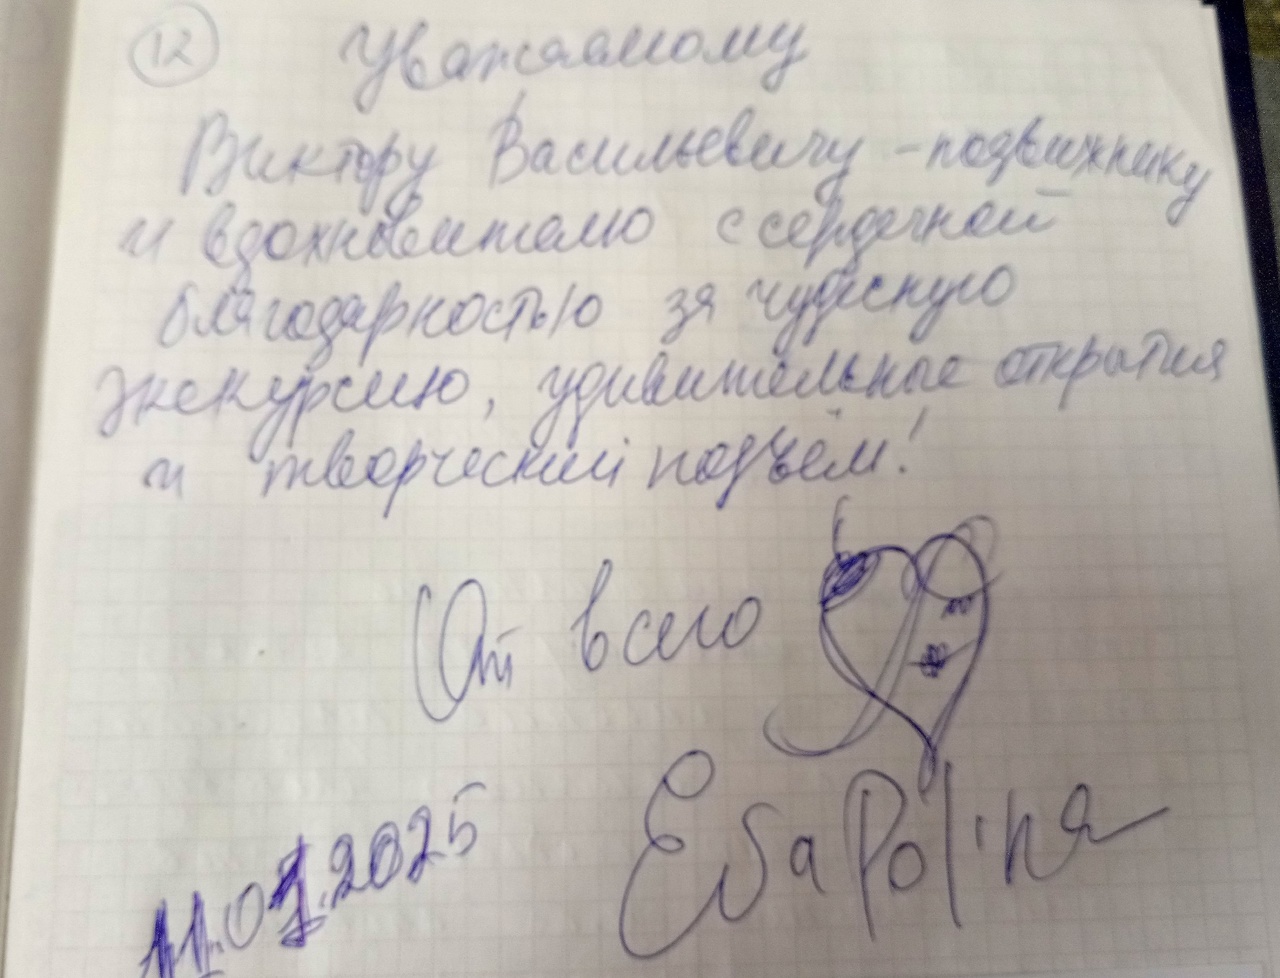 12
Уважаемому
Виктору Васильевичу - подвижнику
и вдохновителю с сердечной
благодарностью за чудесную
экскурсию, удивительные открытия
и творческий подъём!
От всего
11.07.2025